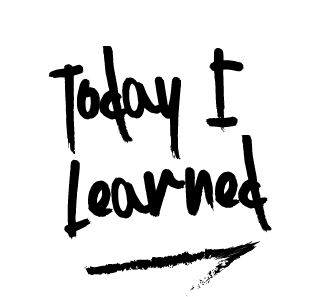 Today I
Learned